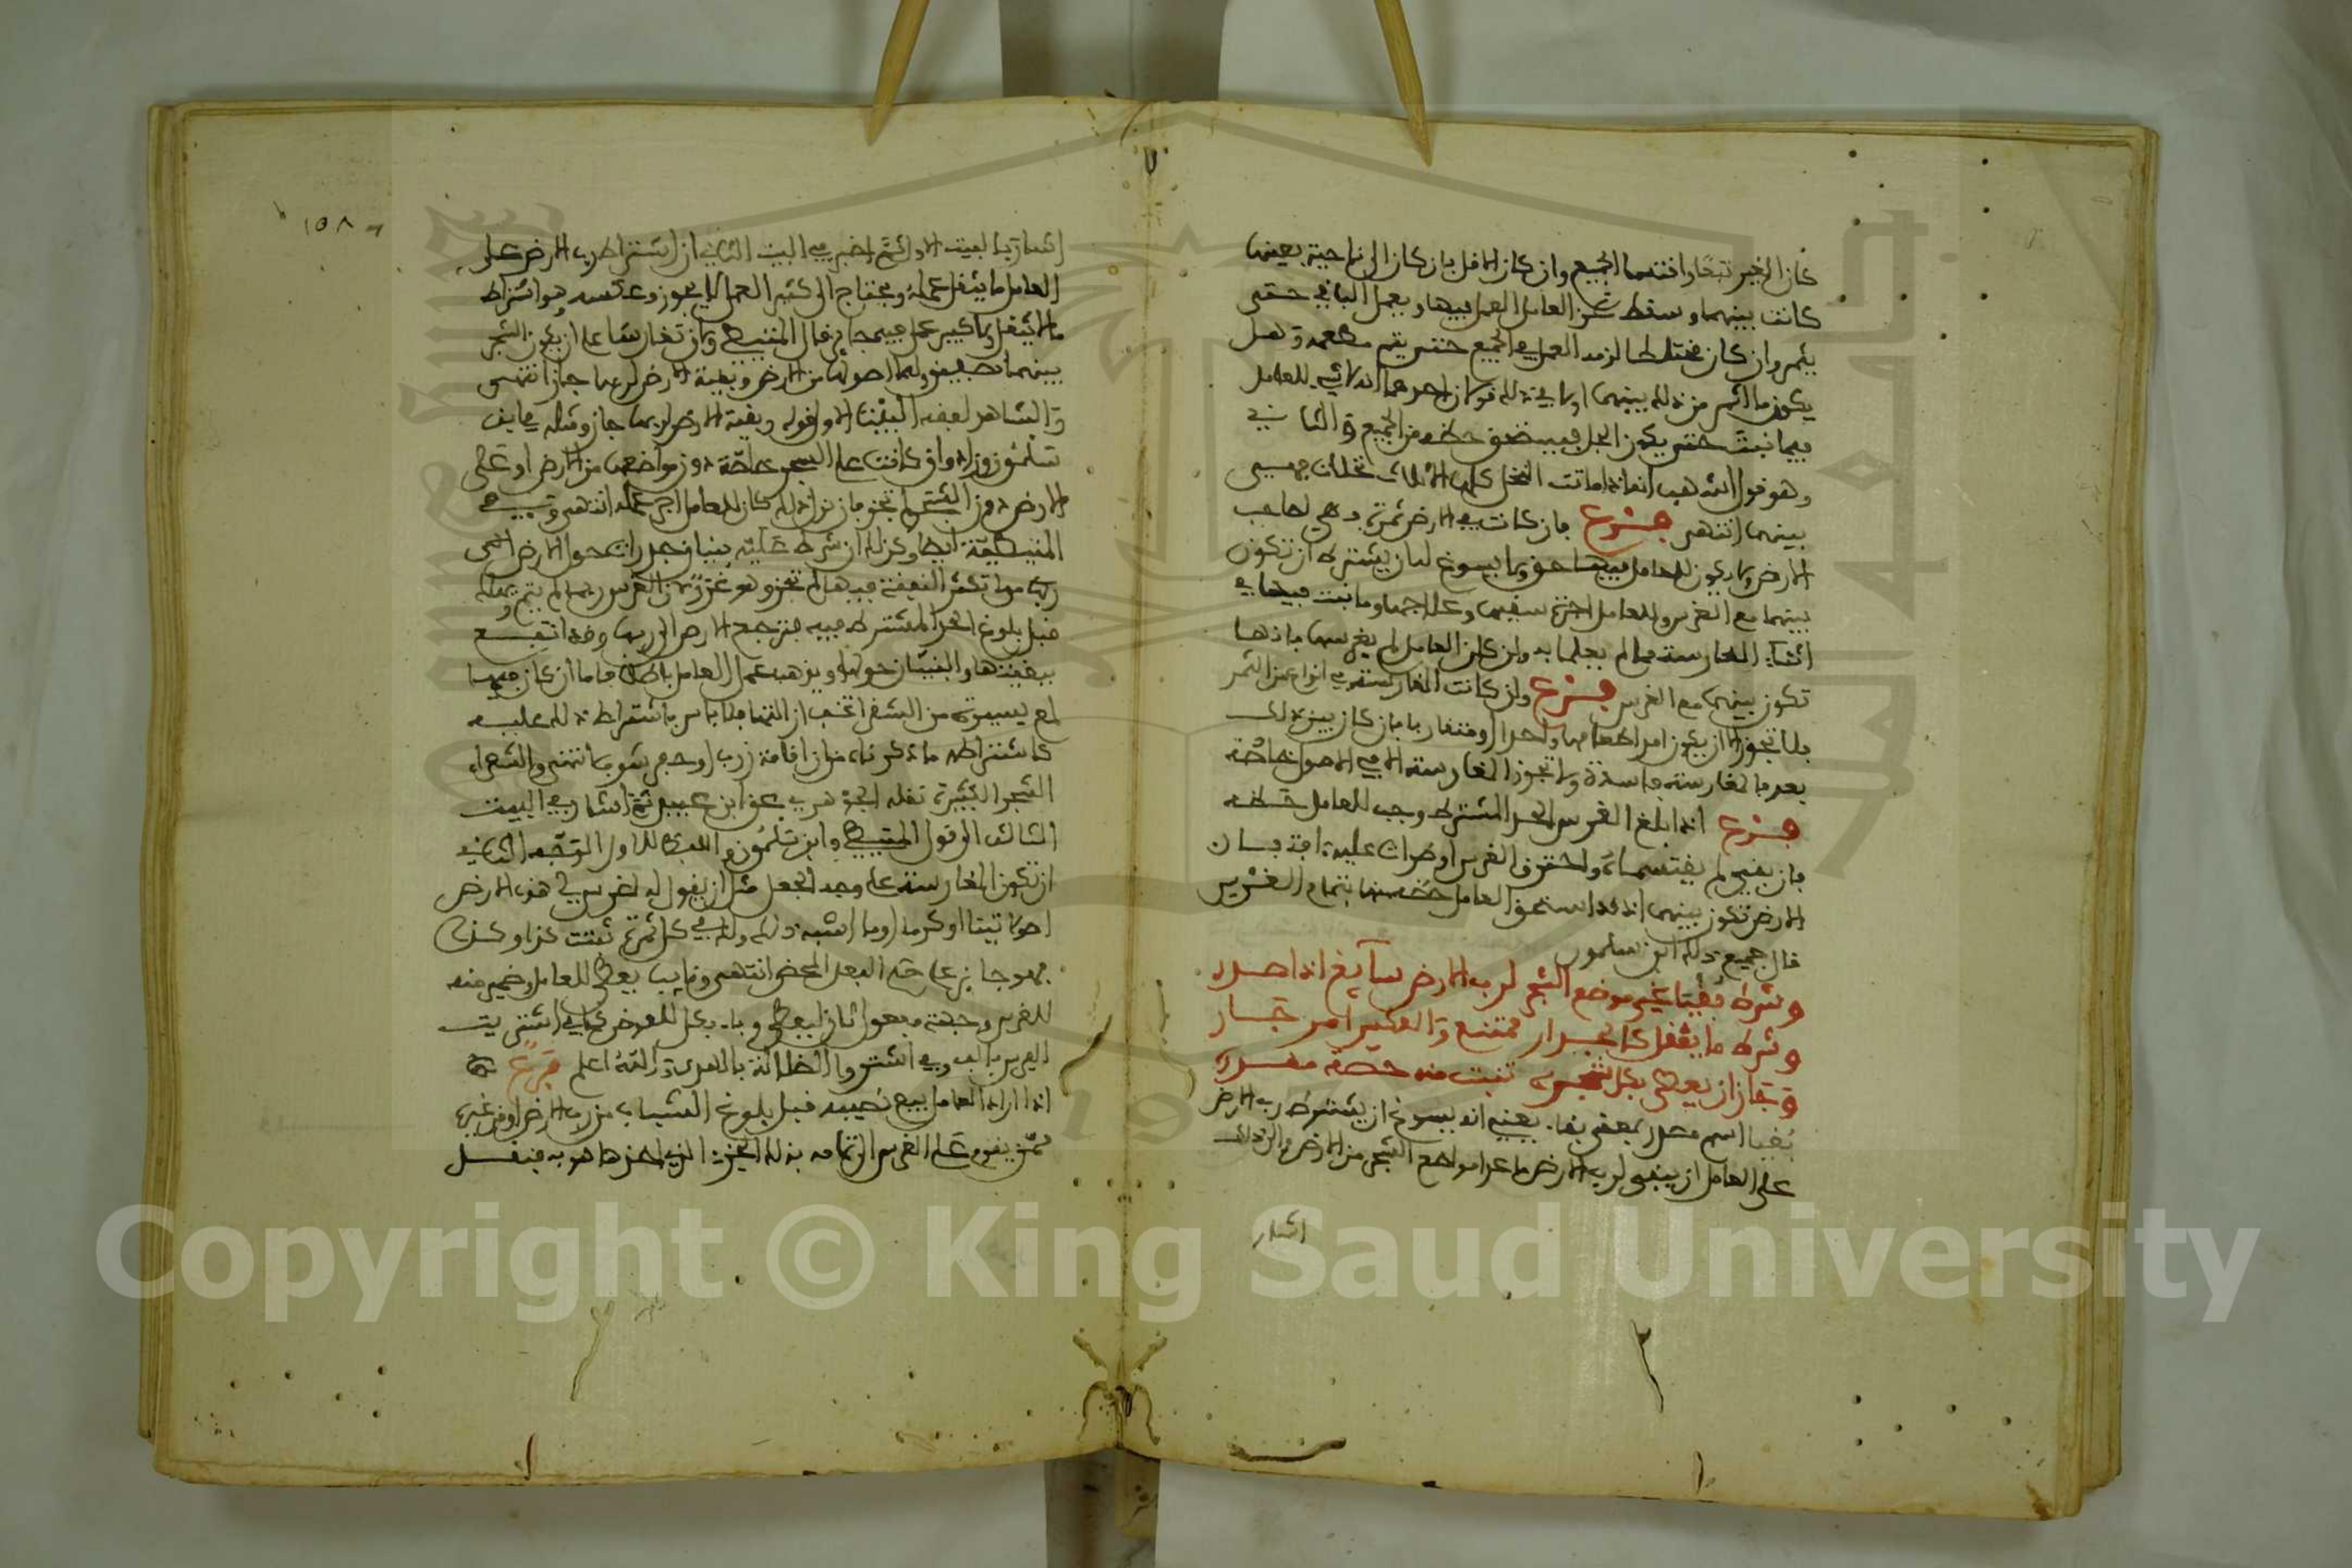 كان الاخير تبعا واقتسما الجميع وان كان الاقل بان كان الى ناحية بعينها
كانت بينهما وسقط عن العامل العمل فيها ويعمل الباقي حتى
يثمر وان كان مختلطا لزمه العمل في الجميع حتى يتم
يكون ما اثمر من ذلك بينهما او لا
فيما نبت حتى يكون الجل فيستحق حظه من الجميع والثاني
وهو قول اشهب انه اذا ماتت النخل كلها الا ثلاث نخلات فهي
بينهما انتهى فرع فان كانت في الارض ثمرة فهي لصاحب
الارض ولا يكون للعامل فيها حق ولا يسوغ له ان يشترط ان تكون
بينهما مع الغرس وللعامل اجرة سقيها وعلاجها وما نبت فيها في
اثناء المغارسة مما لم يعلما به وان كان العامل لم يغرسها فانها
تكون بينهما مع الغرس فرع وان كانت المغارسة في انواع من الثمر
فلا تجوز الا ان يكون امد اطعامها واحدا او متقاربا فان كان بين ذلك
بعد فالمغارسة فاسدة ولا تجوز المغارسة الا في الاصول خاصة
فرع اذا بلغ الغرس الحد المشترط وجب للعامل حظه
فان بقي لم يقتسماه واحترق الغرس او طرات عليه آفة فان
الارض تكون بينهما اذ قد استحق العامل حظه منها بتمام الغرس
قال جميع ذلك ابن سلمون
وشرط بقيا غير موضع الشجر لرب الارض سايغ اذا صدر
وشرط ما يثقل كالجدار ممتنع والعكس امر جار
وجاز ان يعطى بكل شجرة تنبت منه حصة مقدرة
بقيا اسم مصدر بمعنى بقاء يعني انه يسوغ ان يشترط رب الارض
على العامل ان يبقى لرب الارض ما عدا مواضع الشجر من الارض والى ذلك
اشار
١٥٨
اشار بالبيت الاول ثم اخبر في البيت الثاني ان اشتراط رب الارض على
العامل ما يثقل عمله ويحتاج الى كثير العمل لا يجوز وعكسه هو اشتراط
ما لا يثقل ولا كبير عمل فيه جايز قال المتيطي وان تغارسا على ان يكون الشجر
بينهما نصفين ولهما اصولها من الارض وبقية الارض لربها جاز انتهى
والشاهد لفقه البيت الاول قوله وبقية الارض لربها جاز ومثله في ابن
سلمون وزاد وان كانت على الشجر خاصة دون مواضعها من الارض او على
الارض دون الشجر لم تجز فان نزل ذلك كان للعامل اجر عمله انتهى وفي
المتيطية ايضا وكذلك ان شرط عليه بنيان جدرات حول الارض
ربما تكثر النفقة فيها لم تجز وهو غرر لان الغرس ربما لم يتم بعمله
قبل بلوغ الحد المشترط فيه فترجع الارض الى ربها وقد انتفع
ببقيتها والبنيان حولها ويذهب عمل العامل باطلا فاما ان كان فيها
لمع يسيرة من الشعراء فلا باس باشتراط ذلك عليه
كاشتراطه ما ذكرناه من اقامة زرب او حفر انتهى والشعراء
الشجر الكثيرة نقله الجوهري عن ابي عبيد ثم اشار في البيت
الثالث الى قول المتيطي وابن سلمون واللفظ للاول الوجه الثاني
ان تكون المغارسة على وجه الجعل مثل ان يقول له اغرس لي هذه الارض
اصولا تينا او كرما او ما اشبه ذلك ولك في كل ثمرة تنبت كذا وكذا
فهو جايز على حكم الجعل المحض انتهى ونايب يعطى للعامل وضمير منه
للغرس وحصة مفعول ثان ليعطى وباء بكل للعوض كما في اشتريت
الفرس بالف وفي اشتروا الضلالة بالهدى والله اعلم فرع
اذا اراد العامل بيع نصيبه قبل بلوغ الشباب من رب الارض او من غيره
ممن يقوم على الغرس الى تمامه بذلك الجزء الذي اخذها هو به فنقل